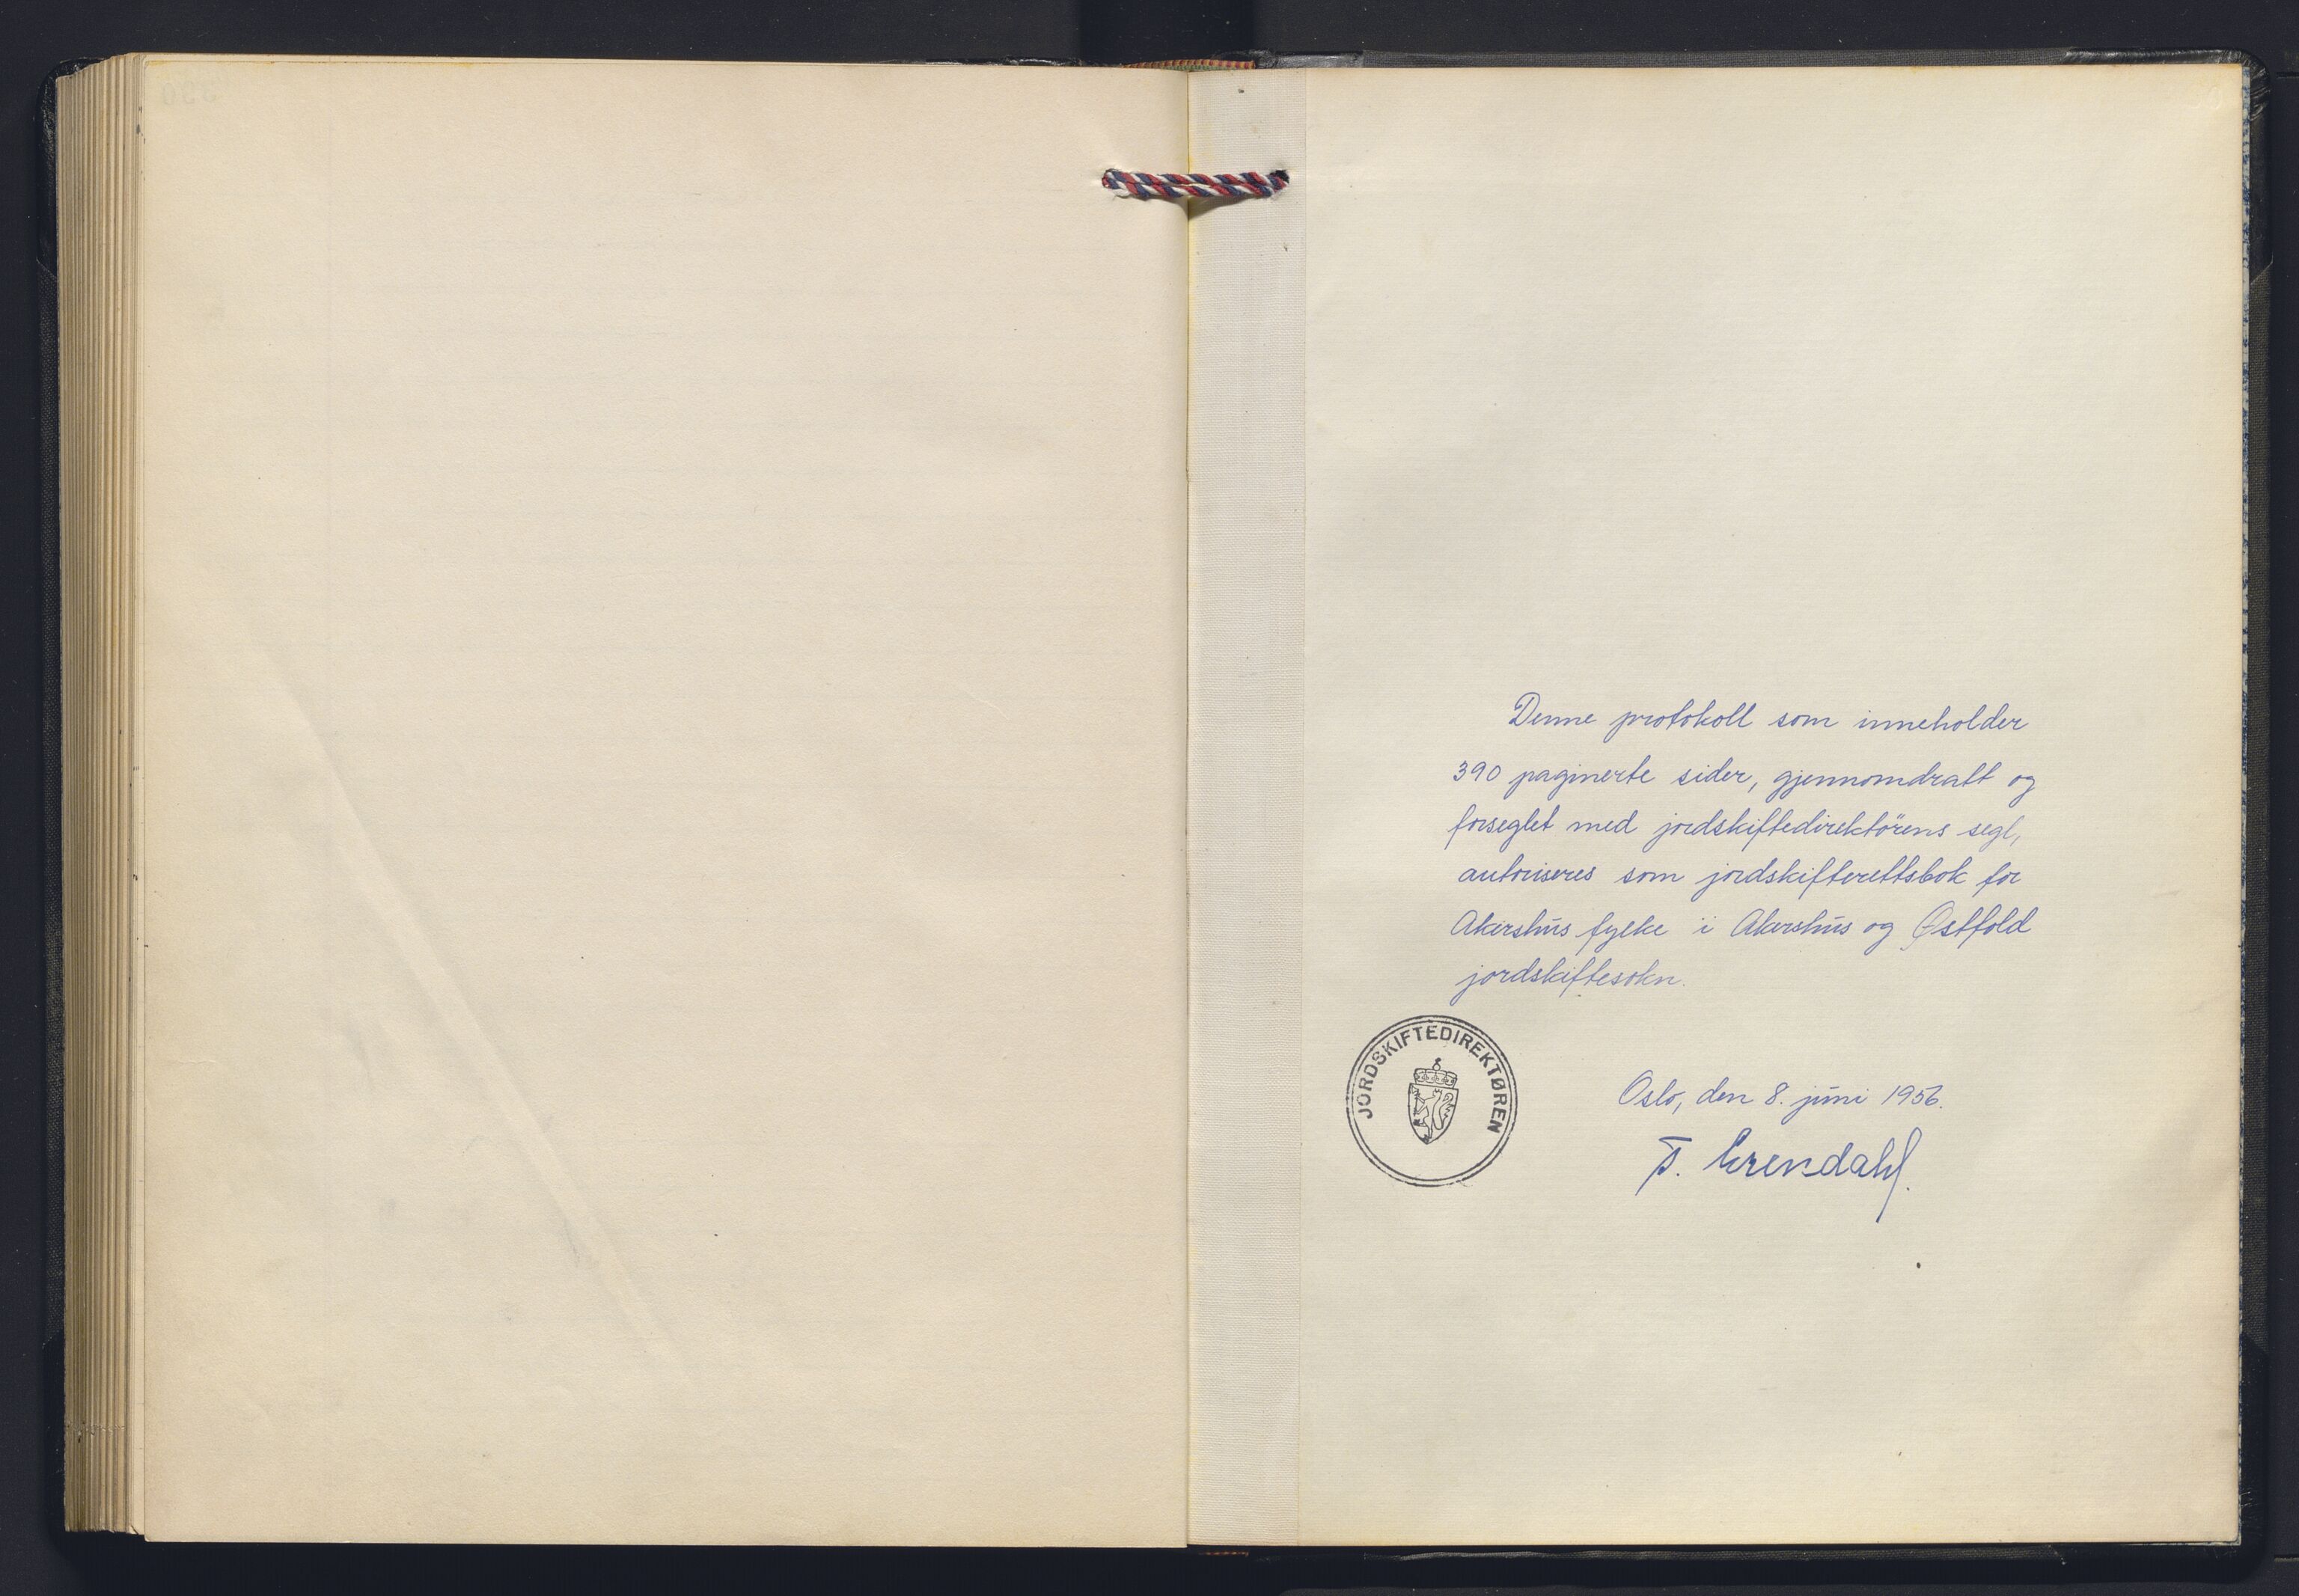 Denne protokoll som inneholder
390 paginerte sider, gjennomdratt og
forseglet med jordskiftedirektörens segl,
autoriseres som jordskifterettsbok for
Akershus fylke i Akershus og Østfold
jordskiftesokn.
JORDSKIFTEDIREKTØREN
Oslo, den 8. juni 1956.
T. Grendahl.